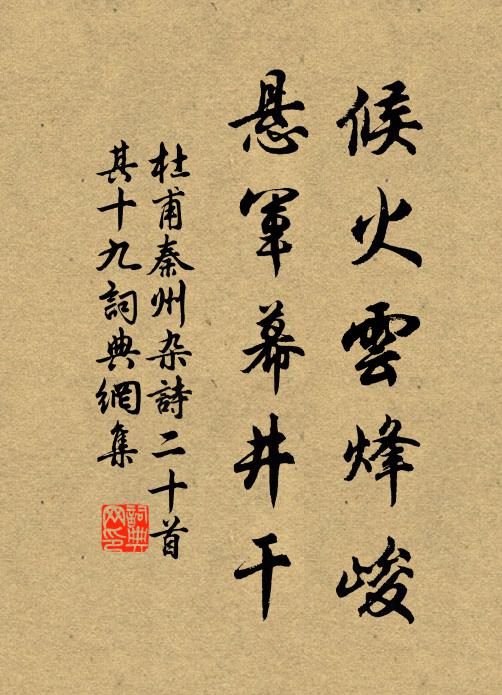 候火雲烽峻
悬軍幕井干
杜甫秦州杂詩二十首
其十九詞典網集
詞典网印